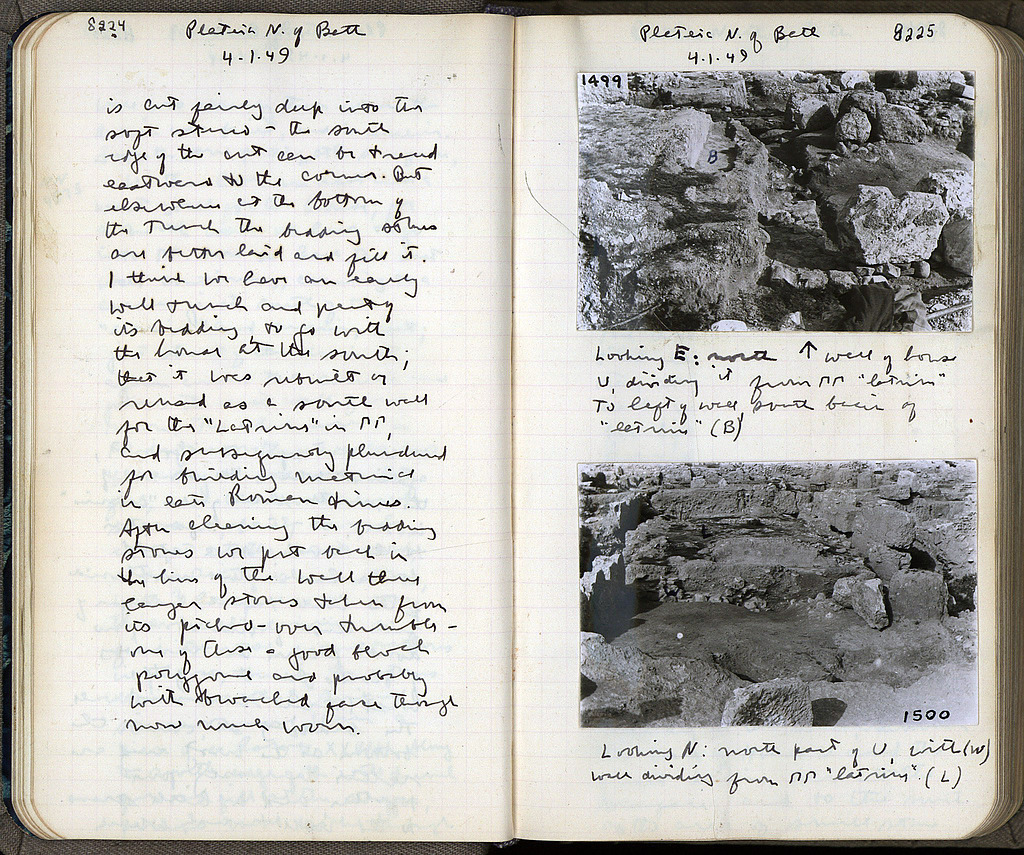 8224
Plateia N. of Batt
4-1-49
is cut fairly deep into the
soft stereo - the south
edge of the cut can be traced
eastward to the corner. But
elsewhere at the bottom of
the trench the bedding stones
are better laid and fill it.
I think we have an early
wall trench and partly
its bedding, to go with
the house at the south;
that it was rebuilt or
reused as a south wall
for the "Latrines" in
and subsequently plundered
for building material
in late Roman times.
After cleaning the bedding
stones we put back in
the line of the wall three
larger stones taken from
its picked-over tumble -
one of these a good block
polygonal and probably
with broached face though
now much worn.
Plateia N. of Batt
4-1-49
8225
1499
B
Looking E: north ↑ wall of house
U, dividing it from "latrines"
To left of wall, south basin of
"latrines" (B)
1500
Looking N: north part of U, with (W)
wall dividing from "latrines". (L)